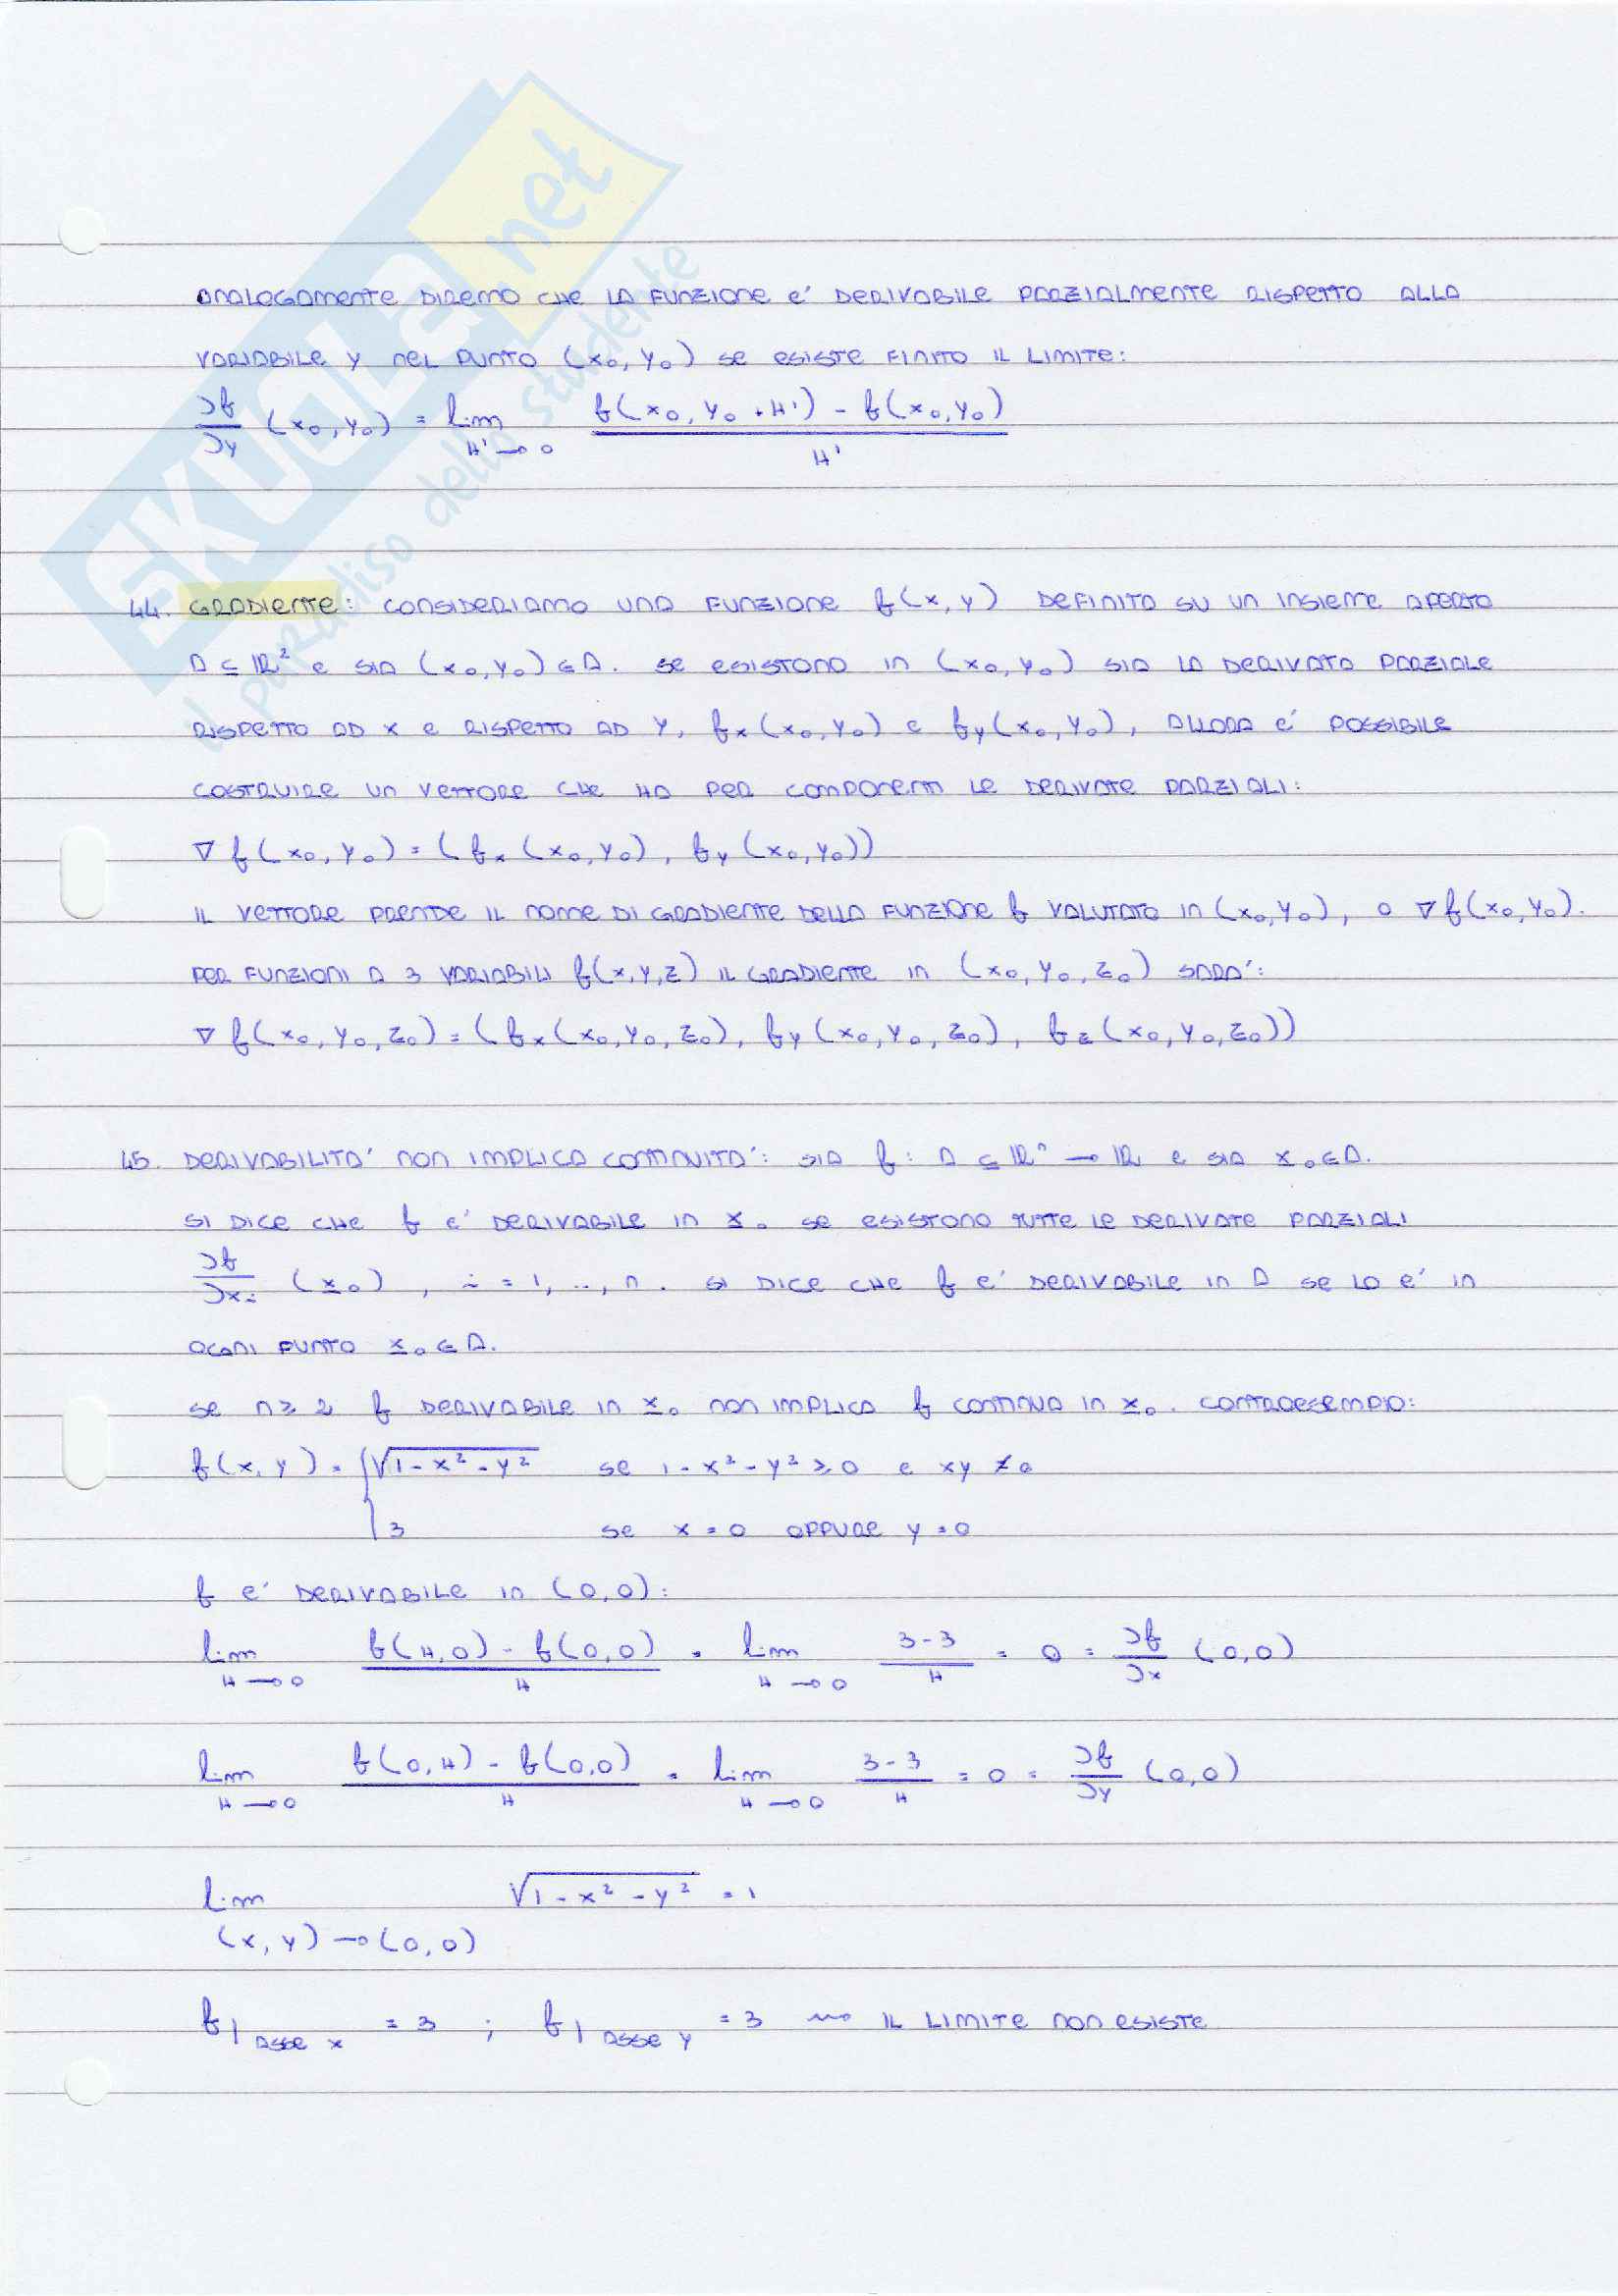 SKUOLA.net
il paradiso dello studente
ANALOGAMENTE DIREMO CHE LA FUNZIONE E' DERIVABILE PARZIALMENTE RISPETTO ALLA
VARIABILE Y NEL PUNTO (x₀, y₀) SE ESISTE FINITO IL LIMITE:
∂f/∂y (x₀, y₀) = lim H'→0 f(x₀, y₀ + H') - f(x₀, y₀) / H'
44. GRADIENTE: CONSIDERIAMO UNA FUNZIONE f(x, y) DEFINITA SU UN INSIEME APERTO
A ⊆ ℝ² E SIA (x₀, y₀) ∈ A. SE ESISTONO IN (x₀, y₀) SIA LA DERIVATA PARZIALE
RISPETTO AD X E RISPETTO AD Y, fx(x₀, y₀) E fy(x₀, y₀), ALLORA E' POSSIBILE
COSTRUIRE UN VETTORE CHE HA PER COMPONENTI LE DERIVATE PARZIALI:
∇f(x₀, y₀) = (fx(x₀, y₀), fy(x₀, y₀))
IL VETTORE PRENDE IL NOME DI GRADIENTE DELLA FUNZIONE f VALUTATO IN (x₀, y₀), O ∇f(x₀, y₀).
PER FUNZIONI A 3 VARIABILI f(x, y, z) IL GRADIENTE IN (x₀, y₀, z₀) SARA':
∇f(x₀, y₀, z₀) = (fx(x₀, y₀, z₀), fy(x₀, y₀, z₀), fz(x₀, y₀, z₀))
45. DERIVABILITA' NON IMPLICA CONTINUITA': SIA f: A ⊆ ℝⁿ → ℝ E SIA x₀ ∈ A.
SI DICE CHE f E' DERIVABILE IN x₀ SE ESISTONO TUTTE LE DERIVATE PARZIALI
∂f/∂xi (x₀), i = 1, .., n. SI DICE CHE f E' DERIVABILE IN A SE LO E' IN
OGNI PUNTO x₀ ∈ A.
SE n ≥ 2 f DERIVABILE IN x₀ NON IMPLICA f CONTINUA IN x₀. CONTROESEMPIO:
f(x, y) = { √(1 - x² - y²) SE 1 - x² - y² ≥ 0 E xy ≠ 0
3 SE x = 0 OPPURE y = 0
f E' DERIVABILE IN (0,0):
lim H→0 f(H,0) - f(0,0) / H = lim H→0 3-3 / H = 0 = ∂f/∂x (0,0)
lim H→0 f(0,H) - f(0,0) / H = lim H→0 3-3 / H = 0 = ∂f/∂y (0,0)
lim (x, y)→(0,0) √(1 - x² - y²) = 1
f| ASSE X = 3 ; f| ASSE Y = 3 ⇝ IL LIMITE NON ESISTE